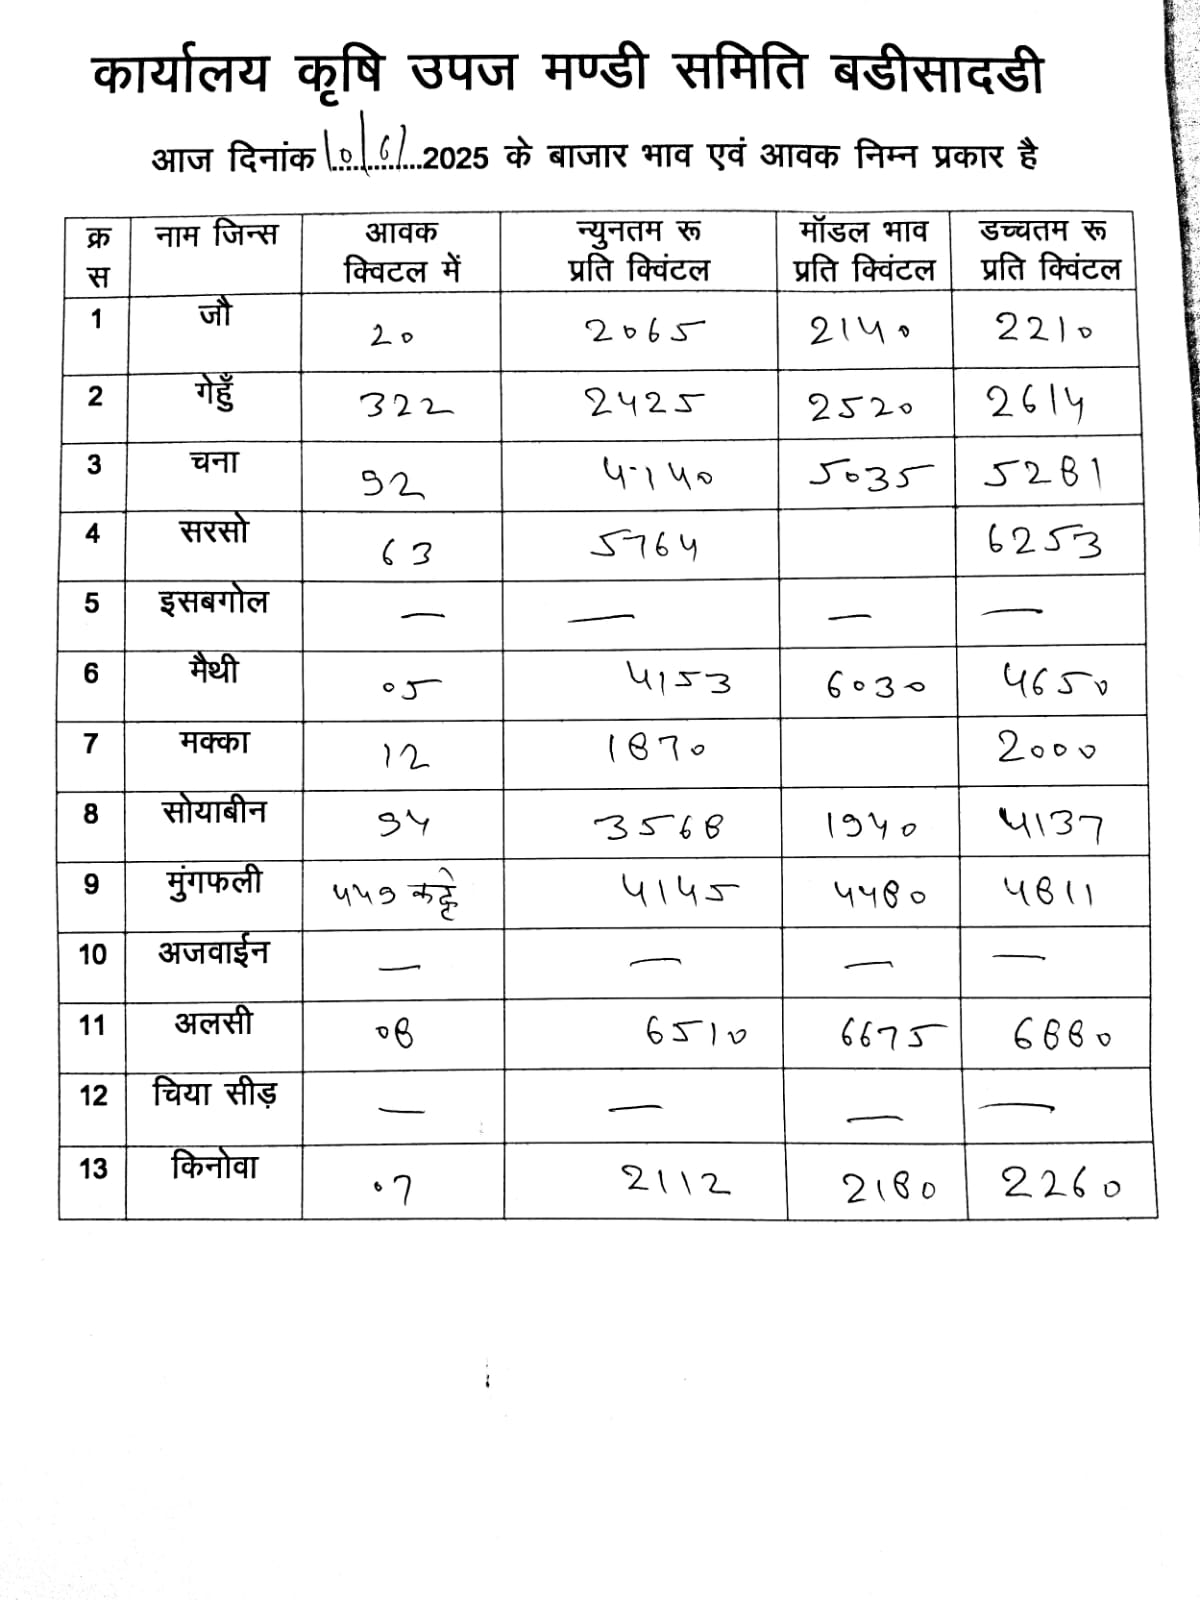 कार्यालय कृषि उपज मण्डी समिति बडीसादडी
आज दिनांक 10/6/2025 के बाजार भाव एवं आवक निम्न प्रकार है
क्र स नाम जिन्स आवक क्विटल में न्युनतम रू प्रति क्विंटल मॉडल भाव प्रति क्विंटल डच्चतम रू प्रति क्विंटल
1 जौ 20 2065 2140 2210
2 गेहुँ 322 2425 2520 2614
3 चना 92 4740 5035 5281
4 सरसो 63 5764 6253
5 इसबगोल — — — —
6 मैथी 05 4153 6030 4650
7 मक्का 12 1870 2000
8 सोयाबीन 94 3568 1940 4137
9 मुंगफली 449 कट्टे 4145 4480 4811
10 अजवाईन — — — —
11 अलसी 08 6510 6675 6880
12 चिया सीड़ — — — —
13 किनोवा 07 2112 2180 2260